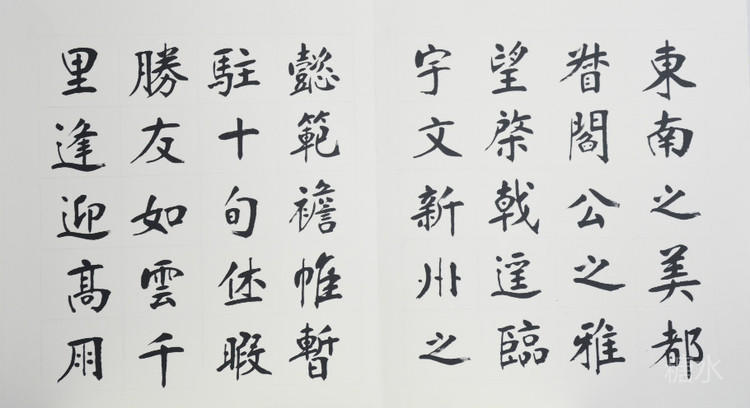 東南之美都
督閻公之雅
望棨戟遥臨
宇文新州之
懿範襜帷暫
駐十旬休暇
勝友如雲千
里逢迎髙朋